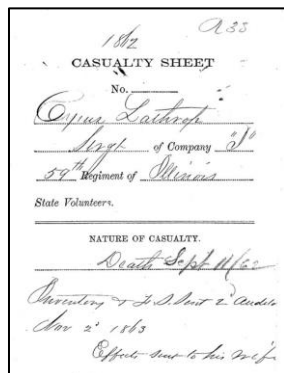 A 33
1862
CASUALTY SHEET
No.
Cyrus Lathrop
Sergt of Company "I"
59th Regiment of Illinois
State Volunteers.
NATURE OF CASUALTY.
Death Sept 11/62
Inventory & F. S. Sent 2d
Nov 2d 1863
Effects sent to his wife